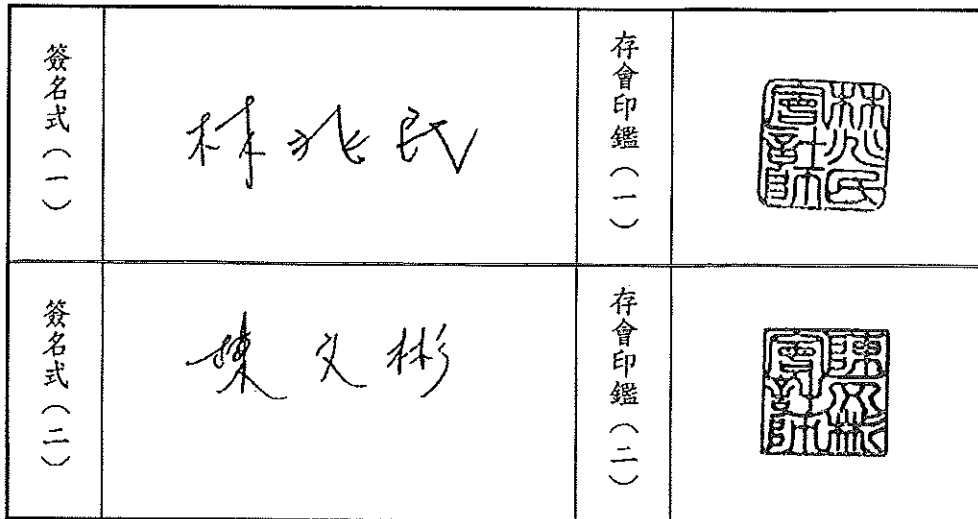 簽名式(一)
林兆民
存會印鑑(一)
林兆民會計師
簽名式(二)
陳文彬
存會印鑑(二)
陳文彬會計師